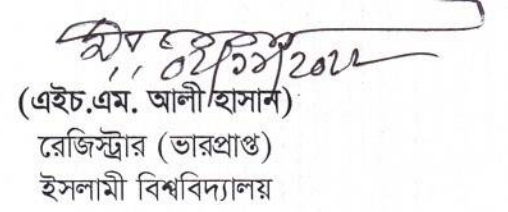 (এইচ.এম. আলী হাসান)
রেজিস্ট্রার (ভারপ্রাপ্ত)
ইসলামী বিশ্ববিদ্যালয়